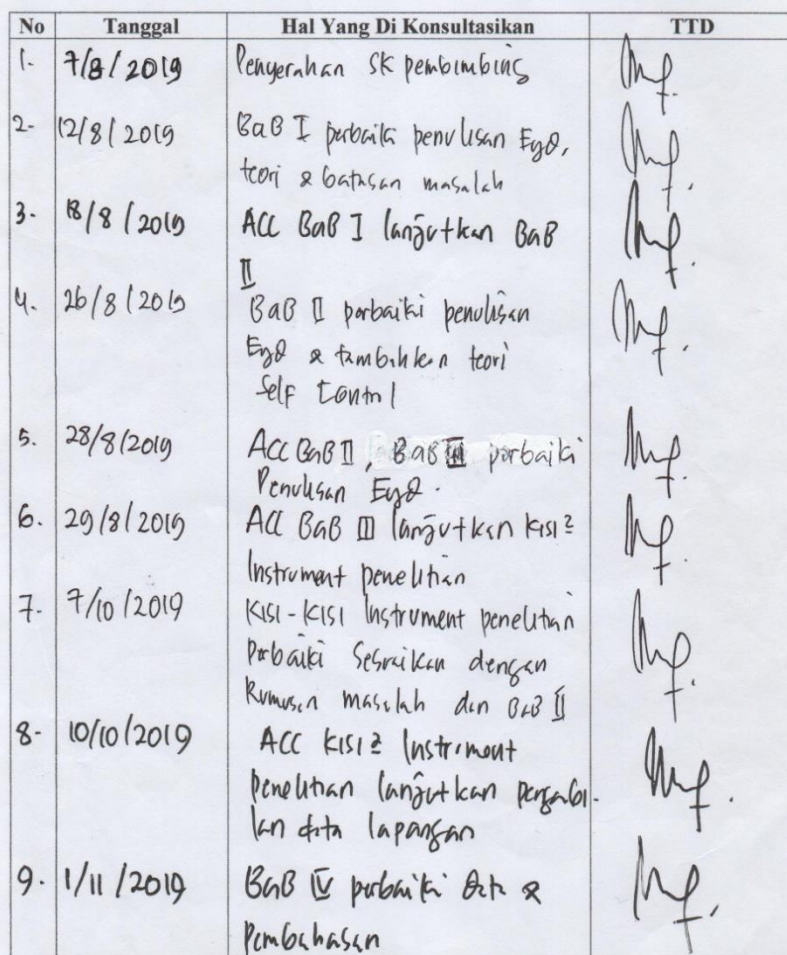 No Tanggal Hal Yang Di Konsultasikan TTD
1. 7/8/2019 Penyerahan SK pembimbing
2- 12/8/2019 BaB I perbaiki penulisan EyD,
teori & batasan masalah
3. 18/8/2019 ACC BaB I lanjutkan BaB
II
4. 26/8/2019 BaB II perbaiki penulisan
EyD & tambahkan teori
Self Control
5. 28/8/2019 ACC BaB II, BaB III perbaiki
Penulisan EyD.
6. 29/8/2019 ACC BaB III lanjutkan kisi2
Instrument penelitian
7. 7/10/2019 Kisi-kisi Instrument penelitian
perbaiki Sesuaikan dengan
Rumusan masalah dan BaB II
8- 10/10/2019 ACC kisi2 Instrument
penelitian lanjutkan pengambi-
lan data lapangan
9. 1/11/2019 BaB IV perbaiki data &
Pembahasan